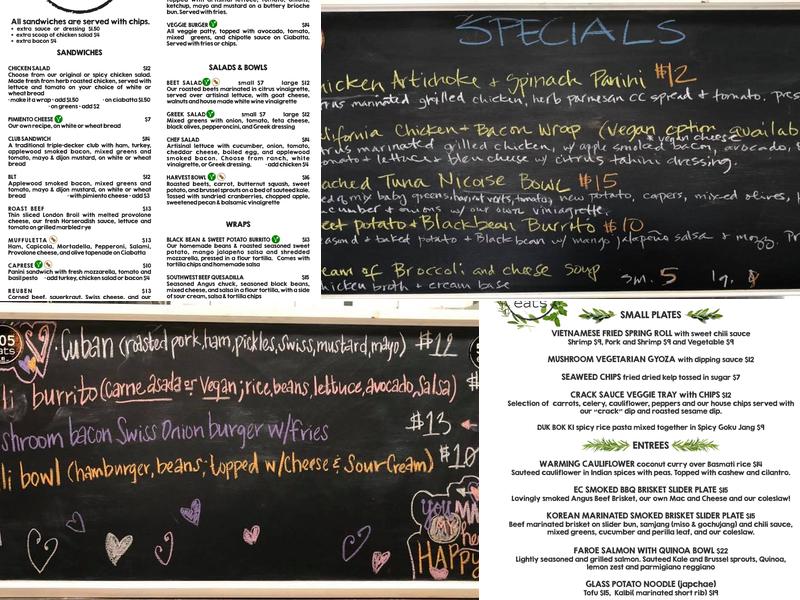 All sandwiches are served with chips.
• extra sauce or dressing $1.50
• extra scoop of chicken salad $4
• extra bacon $4
SANDWICHES
CHICKEN SALAD $12
Choose from our original or spicy chicken salad.
Made fresh from herb roasted chicken, served with
lettuce and tomato on your choice of white or
wheat bread
- make it a wrap - add $1.50 - on ciabatta $1.50
- on greens - add $2
PIMIENTO CHEESE $7
Our own recipe, on white or wheat bread
CLUB SANDWICH $14
A traditional triple-decker club with ham, turkey,
applewood smoked bacon, mixed greens and
tomato, mayo & dijon mustard, on white or wheat
bread
BLT $12
Applewood smoked bacon, mixed greens and
tomato, mayo & dijon mustard, on white or wheat
bread - with pimiento cheese - add $3
ROAST BEEF $13
Thin sliced London Broil with melted provolone
cheese, our fresh Horseradish sauce, lettuce and
tomato on grilled marble rye
MUFFULETTA $13
Ham, Capicola, Mortadella, Pepperoni, Salami,
Provolone cheese, and olive tapenade on Ciabatta
CAPRESE $10
Panini sandwich with fresh mozzarella, tomato and
basil pesto -add turkey, chicken salad or bacon $4
REUBEN $13
Corned beef, sauerkraut, Swiss cheese, and our
ketchup, mayo and mustard on a buttery brioche
bun. Served with fries.
VEGGIE BURGER $14
All veggie patty, topped with avocado, tomato,
mixed greens, and chipotle sauce on Ciabatta.
Served with fries or chips.
SALADS & BOWLS
BEET SALAD small $7 large $12
Our roasted beets marinated in citrus vinaigrette,
served over artisinal lettuce, with goat cheese,
walnuts and house made white wine vinaigrette
GREEK SALAD small $7 large $12
Mixed greens with onion, tomato, feta cheese,
black olives, pepperoncini, and Greek dressing
CHEF SALAD $14
Artisinal lettuce with cucumber, onion, tomato,
cheddar cheese, boiled egg, and applewood
smoked bacon. Choose from ranch, white
vinaigrette, or Greek dressing. -add chicken $4
HARVEST BOWL $16
Roasted beets, carrot, butternut squash, sweet
potato, and brussel sprouts on a bed of sauteed kale.
Tossed with sundried cranberries, chopped apple,
sweetened pecan & balsamic vinaigrette
WRAPS
BLACK BEAN & SWEET POTATO BURRITO $13
Our homemade beans & roasted seasoned sweet
potato, mango jalapeno salsa and shredded
mozzarella, pressed in a flour tortilla. Comes with
tortilla chips and homemade salsa
SOUTHWEST BEEF QUESADILLA $15
Seasoned Angus chuck, seasoned black beans,
mixed cheese, and salsa in a flour tortilla, with a side
of sour cream, salsa & tortilla chips
SPECIALS
icken Artichoke + Spinach Panini $12
rus marinated grilled chicken, herb parmesan cc spread + tomato. pres
lifornia Chicken + Bacon Wrap (vegan option availab
* vegan cheese
rus marinated grilled chicken, w/ apple smoked bacon, avocado,
omato + lettuce + bleu cheese w/ citrus tahini dressing.
ached Tuna Nicoise Bowl $15
mix baby greens, haricot verts, tomato, new potato, capers, mixed olives,
cumber + onions w/ our own vinaigrette.
eet potato + Blackbean Burrito $10
eason'd + baked potato + Blackbean w/ mango jalapeño salsa + mozz.
eam of Broccoli and cheese soup sm. 5 lg.
hicken broth + cream base
05
ats
Cuban (roasted pork, ham, pickles, swiss, mustard, mayo) $12
li burrito (Carne asada or Vegan; rice, beans, lettuce, avocado, salsa)
shroom bacon Swiss Onion burger w/fries $13
li bowl (hamburger, beans; topped w/Cheese & Sour Cream) $10
you
HAPPY
eats
SMALL PLATES
VIETNAMESE FRIED SPRING ROLL with sweet chili sauce
Shrimp $9, Pork and Shrimp $9 and Vegetable $9
MUSHROOM VEGETARIAN GYOZA with dipping sauce $12
SEAWEED CHIPS fried dried kelp tossed in sugar $7
CRACK SAUCE VEGGIE TRAY with CHIPS $12
Selection of carrots, celery, cauliflower, peppers and our house chips served with
our "crack" dip and roasted sesame dip.
DUK BOK KI spicy rice pasta mixed together in Spicy Goku Jang $9
ENTREES
WARMING CAULIFLOWER coconut curry over Basmati rice $14
Sauteed cauliflower in Indian spices with peas. Topped with cashew and cilantro.
EC SMOKED BBQ BRISKET SLIDER PLATE $15
Lovingly smoked Angus Beef Brisket, our own Mac and Cheese and our coleslaw!
KOREAN MARINATED SMOKED BRISKET SLIDER PLATE $15
Beef marinated brisket on slider bun, samjang (miso & gochujang) and chili sauce,
mixed greens, cucumber and perilla leaf, and our coleslaw.
FAROE SALMON WITH QUINOA BOWL $22
Lightly seasoned and grilled salmon. Sauteed Kale and Brussel sprouts, Quinoa,
lemon zest and parmigiano reggiano
GLASS POTATO NOODLE (japchae)
Tofu $15, Kalbi( marinated short rib) $19